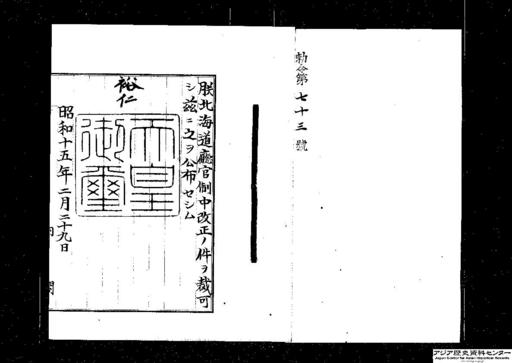 勅令第七十三號
朕北海道廳官制中改正ノ件ヲ裁可
シ茲ニ之ヲ公布セシム
裕仁
天皇
御璽
昭和十五年二月二十九日
内 閣
アジア歴史資料センター
Japan Center for Asian Historical Records